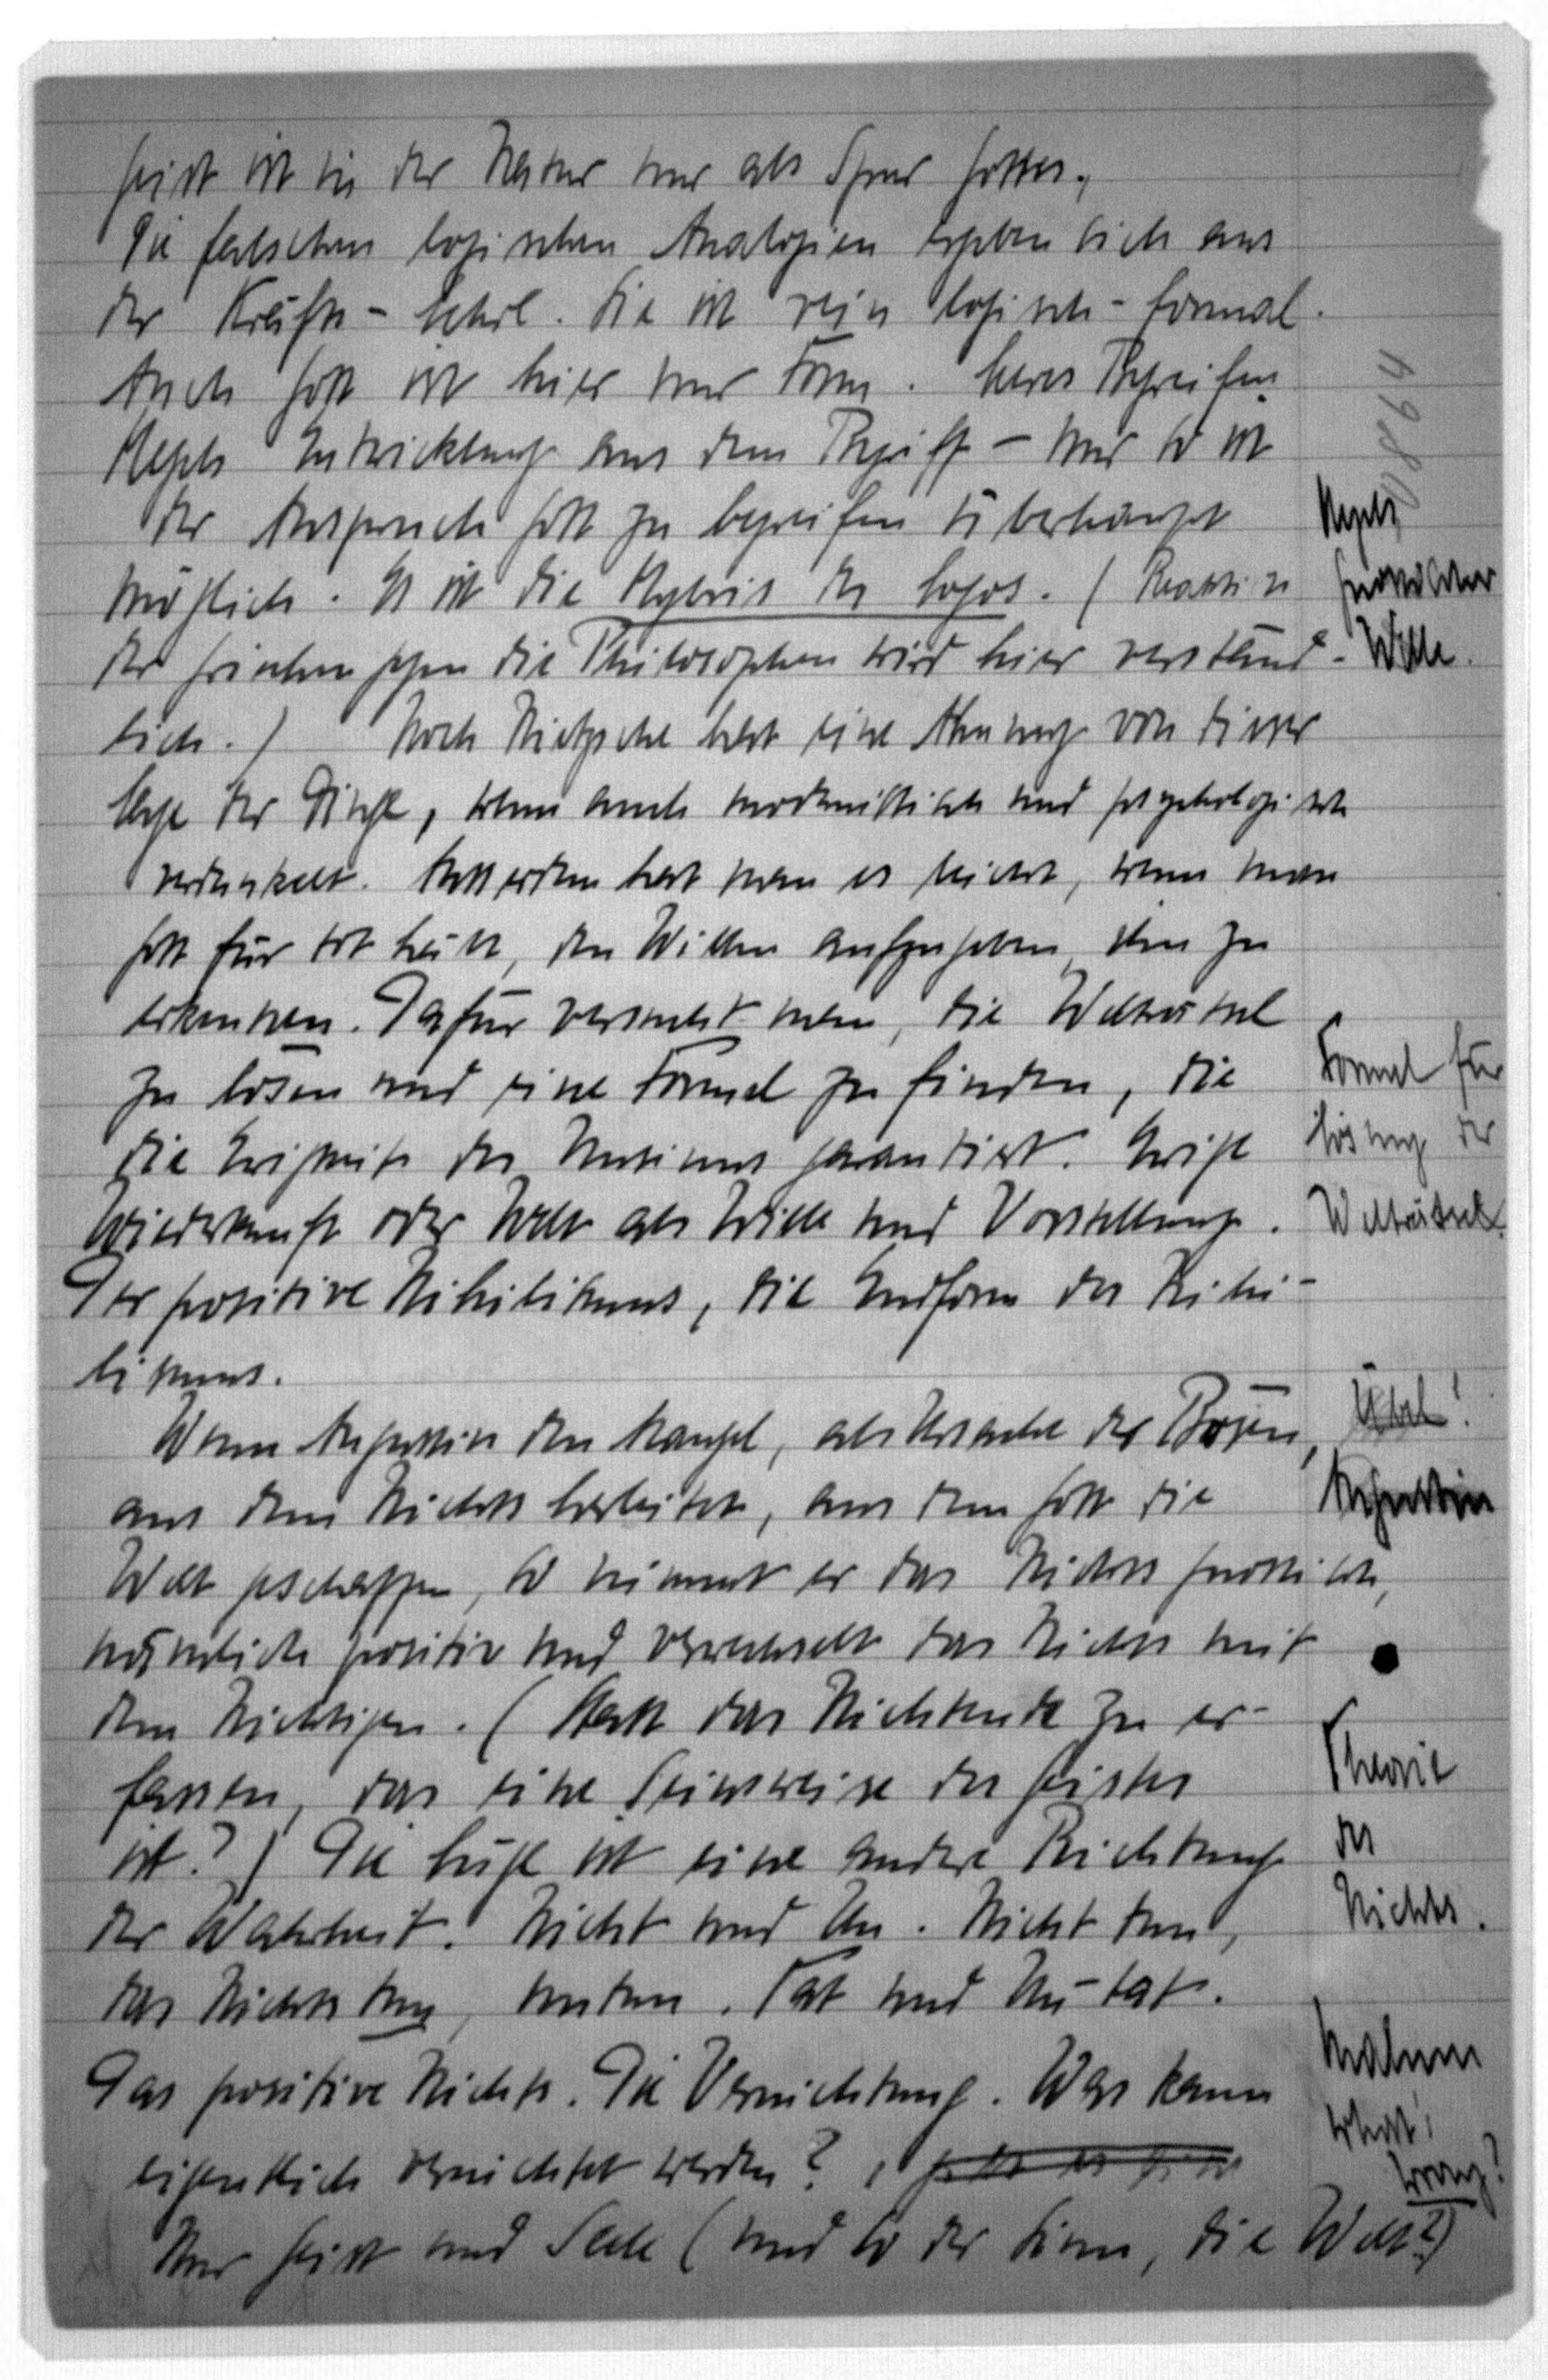 Geist ist in der Natur nur als Spur Gottes.
Die falschen logischen Analogien ergeben sich aus
der Kräfte-Lehre. Sie ist rein logisch-formal.
Auch Gott ist hier nur Form. Leeres Begreifen.
Hegels Entwicklung aus dem Begriff – nur so ist
der Anspruch Gott zu begreifen überhaupt
möglich. Es ist die Hybris des Logos. (Reaktion
der Griechen gegen die Philosophen wird hier verständ-
lich.) Noch Nietzsche hat eine Ahnung von dieser
Lage der Dinge, wenn auch modernistisch und psychologisch
verdunkelt. Ausserdem hat man es leicht, wenn man
Gott für tot hält, den Willen aufzugeben, ihn zu
erkennen. Dafür versucht man, die Welträtsel
zu lösen und eine Formel zu finden, die
die Ewigkeit des Unsinns garantiert. Ewige
Wiederkunft oder Welt als Wille und Vorstellung.
Der positive Nihilismus, die Endform des Nihi-
lismus.
Wenn Augustin den Mangel, als Ursache des Bösen,
aus dem Nichts herleitet, aus dem Gott die
Welt geschaffen, so nimmt er das Nichts gnostisch,
nämlich positiv und verwechselt das Nichts mit
dem Nichtigen. (Statt das Nichtende zu er-
fassen, das eine Seinsweise des Geistes
ist?) Die Lüge ist eine andere Richtung
der Wahrheit. Nicht und Un. Nicht tun,
das Nichts tun, untun. Tat und Un-tat.
Das positive Nichts. Die Vernichtung. Was kann
eigentlich vernichtet werden?
Nur Geist und Seele (und so der Sinn, die Welt?)
Hegels
gnostischer
Wille.
Formel für
Lösung der
Welträtsel.
Übel!
Augustin
Theorie
des
Nichts.
Malum
what's
wrong?